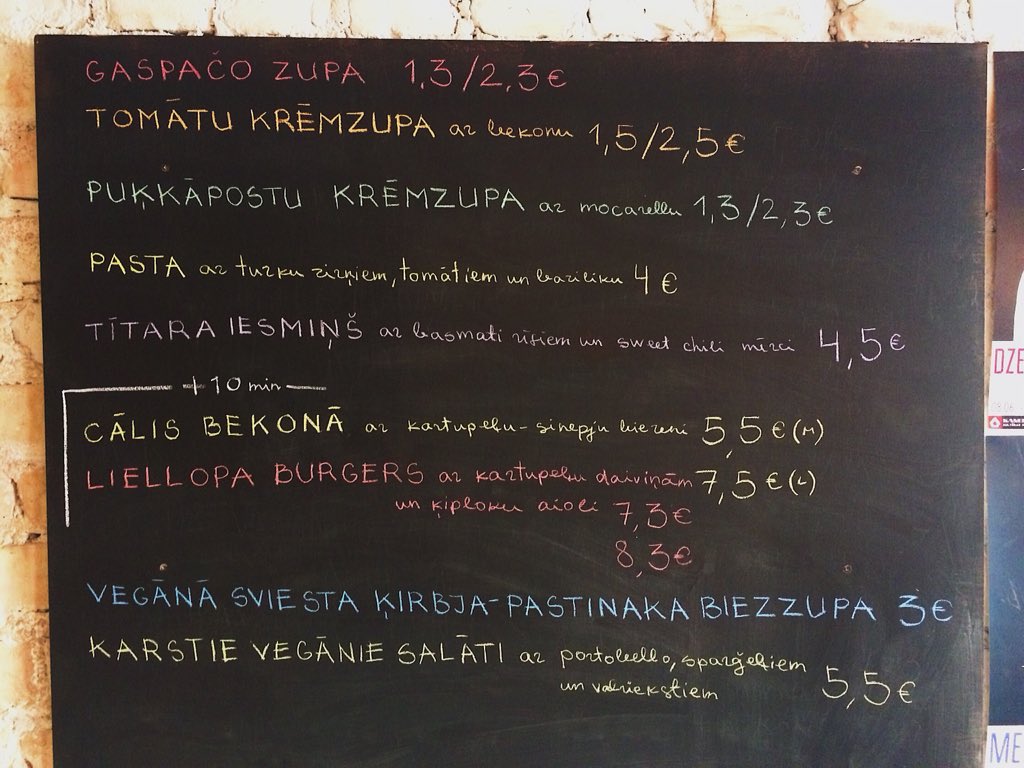 GASPAČO ZUPA 1,3/2,3€
TOMĀTU KRĒMZUPA ar bekonu 1,5/2,5€
PUĶKĀPOSTU KRĒMZUPA ar mocarellu 1,3/2,3€
PASTA ar turku zirņiem, tomātiem un baziliku 4€
TĪTARA IESMIŅŠ ar basmati rīsiem un sweet chili mērci 4,5€
+10 min
CĀLIS BEKONĀ ar kartupeļu-sinepju biezeni 5,5€(M)
LIELLOPA BURGERS ar kartupeļu daiviņām 7,5€(L)
un ķiploku aioli 7,3€
8,3€
VEGĀNĀ SVIESTA ĶIRBJA-PASTINAKA BIEZZUPA 3€
KARSTIE VEGĀNIE SALĀTI ar portobello, sparģeļiem
un valriekstiem 5,5€
DZE
ME